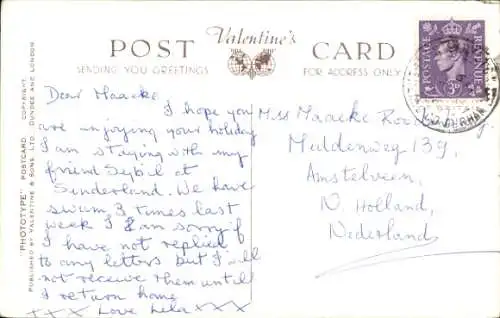 POST Valentine's CARD
SENDING YOU GREETINGS FOR ADDRESS ONLY
POSTAGE REVENUE
3D
DURHAM
"PHOTOTYPE" POSTCARD. COPYRIGHT.
PUBLISHED BY VALENTINE & SONS, LTD. DUNDEE AND LONDON
Dear Maaeke
I hope you
are enjoying your holiday
I am staying with my
friend Sybil at
Sunderland. We have
swum 3 times last
week I am sorry if
I have not replied
to any letters but I will
not receive them until
I return home
XXX Love Lela XXX
Miss Maaeke
Muldenweg 139,
Amstelveen,
N. Holland,
Nederland